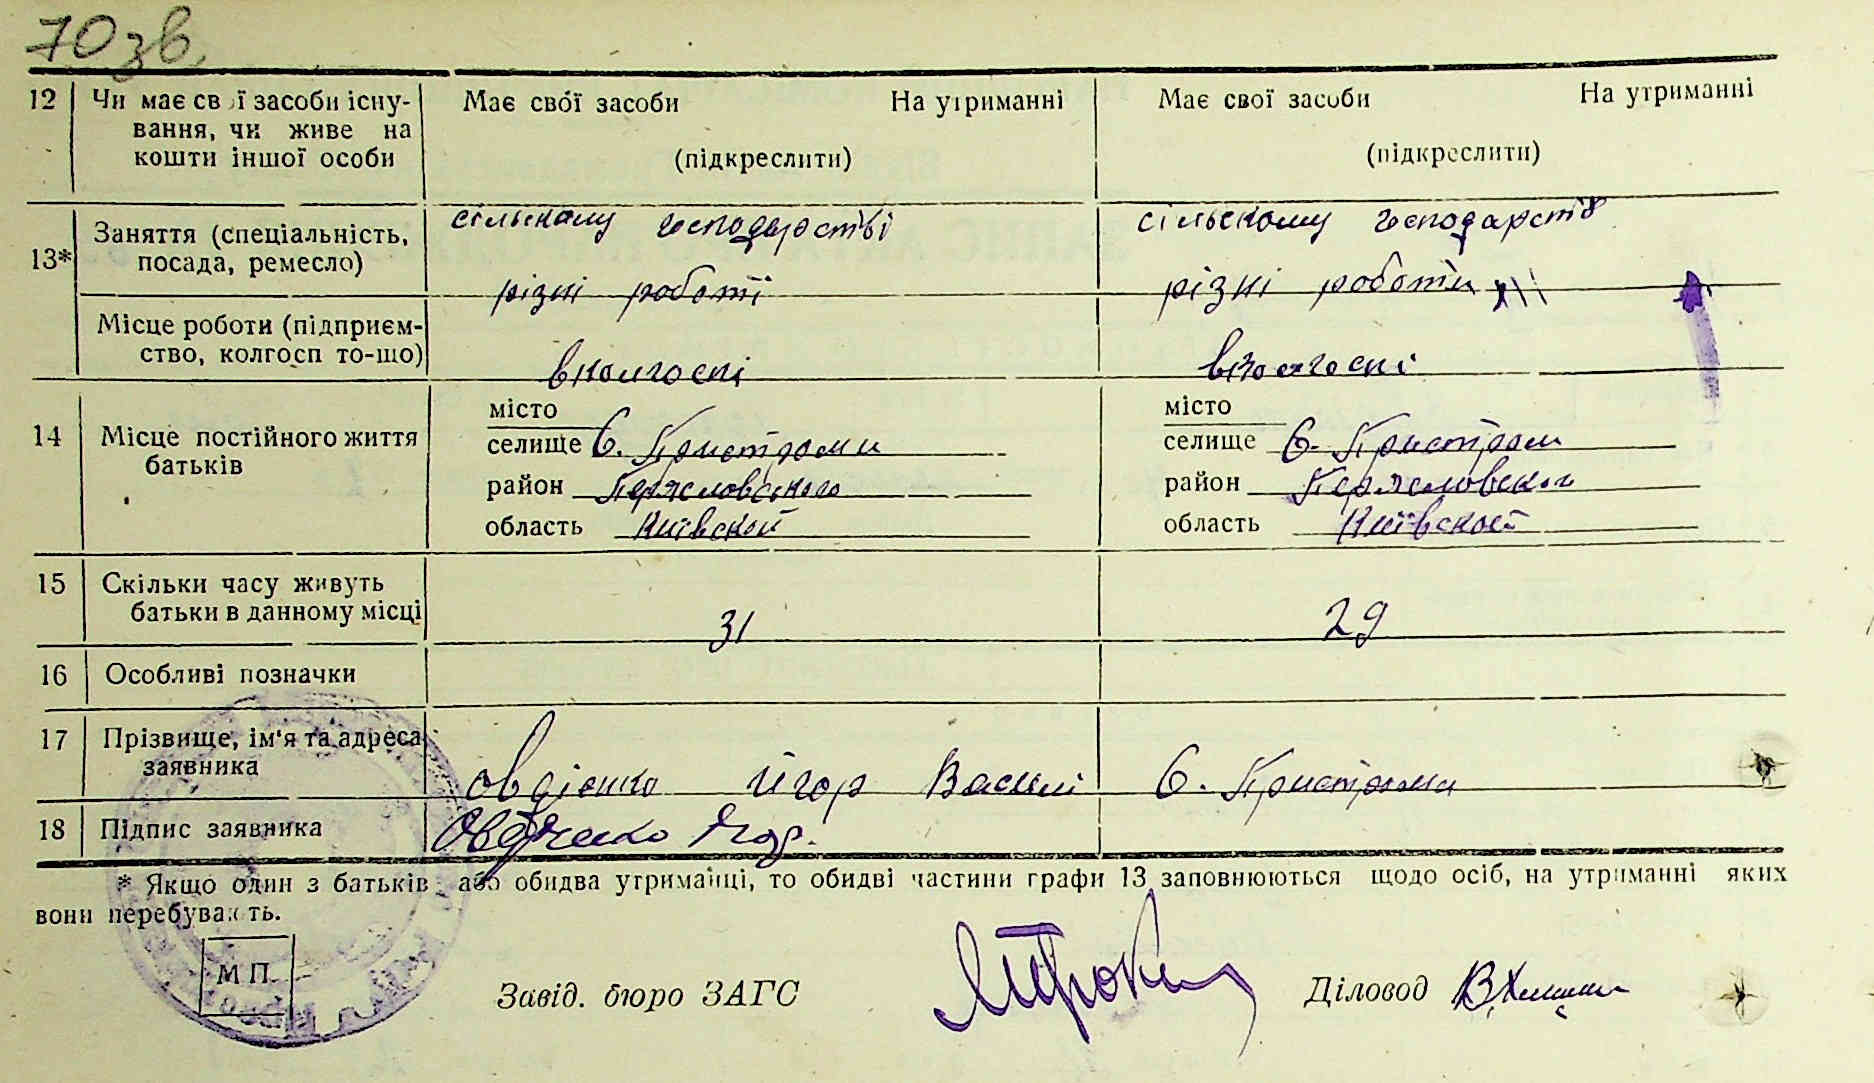 70 зв.
12 Чи має свої засоби існу- Має свої засоби На утриманні Має свої засоби На утриманні
вання, чи живе на
кошти іншої особи (підкреслити) (підкреслити)
сільскаму господарстві сільскому господарств
13* Заняття (спеціальність,
посада, ремесло) різні роботі різні роботи
Місце роботи (підприєм-
ство, колгосп то-що) вколгоспі вколгоспі
14 Місце постійного життя
батьків
місто місто
селище С. Пристроми селище С. Пристроми
район Переяславского район
область Київской область Київской
15 Скільки часу живуть
батьки в данному місці 31 29
16 Особливі позначки
17 Прізвище, ім'я та адреса
заявника Овдієнко Игор Василі С. Пристроми
18 Підпис заявника Овдієнко Игор.
* Якщо один з батьків або обидва утриманці, то обидві частини графи 13 заповнюються щодо осіб, на утриманні яких
вони перебувають.
М П.
Завід. бюро ЗАГС Діловод